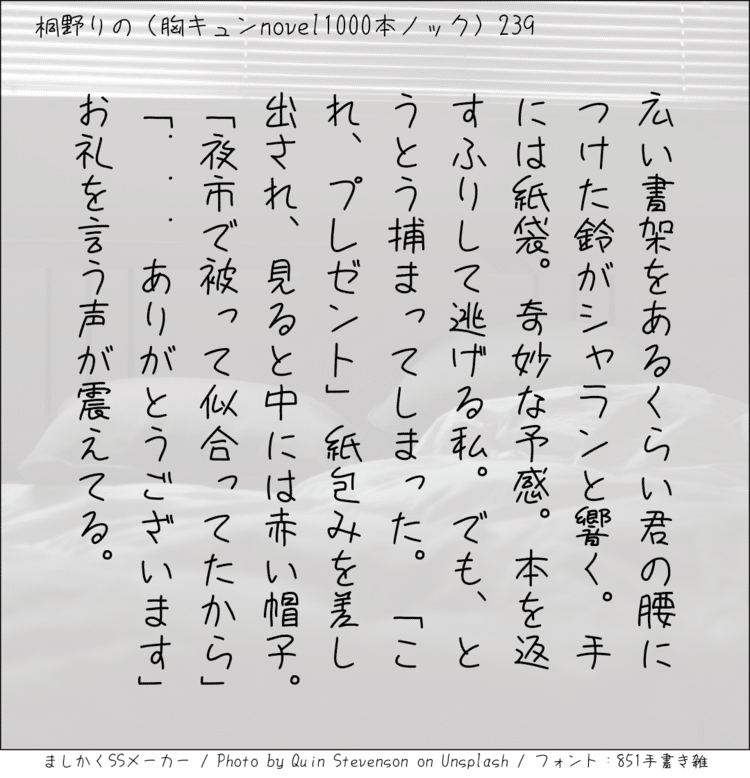 桐野りの（胸キュンnovel1000本ノック）239
広い書架をあるくらい君の腰に
つけた鈴がシャランと響く。手
には紙袋。奇妙な予感。本を返
すふりして逃げる私。でも、と
うとう捕まってしまった。「こ
れ、プレゼント」紙包みを差し
出され、見ると中には赤い帽子。
「夜市で被って似合ってたから」
「...ありがとうございます」
お礼を言う声が震えてる。
ましかくSSメーカー / Photo by Quin Stevenson on Unsplash / フォント：851手書き雑